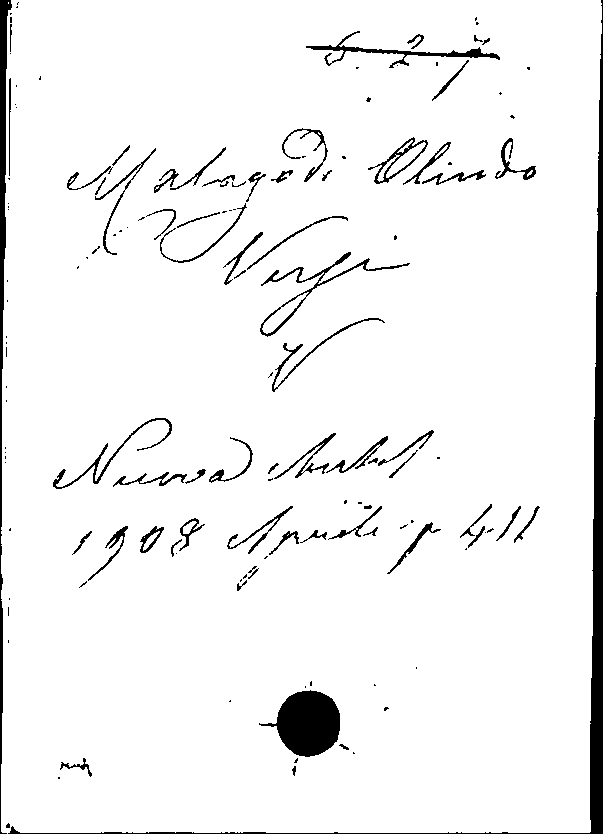 6. 2. 7
Malagodi Olindo
Versi
V
Nuova Antol.
1908 Aprile p 411